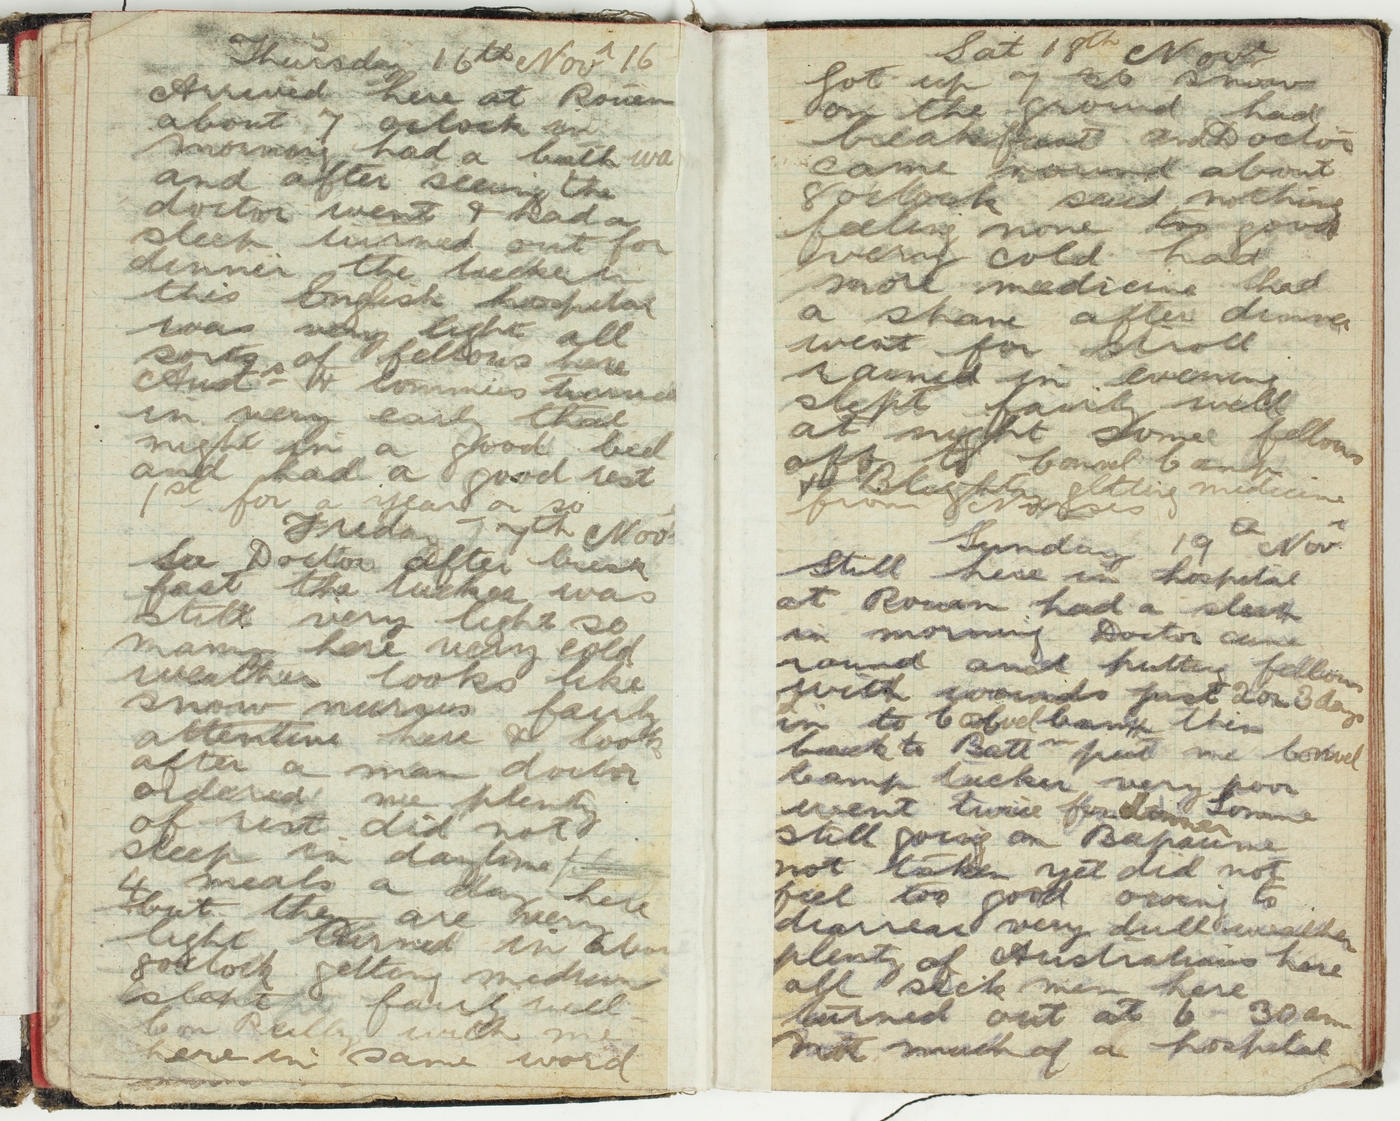 Thursday 16th Novr 16
Arrived here at Rouen
about 7 oclock in
morning had a bath
and after seeing the
doctor went & had a
sleep turned out for
dinner the tucker in
this English hospital
was very light all
sorts of fellows here
Austns & Tommies turned
in very early that
night in a good bed
and had a good rest
1st for a year or so
Friday 17th Novr
See Doctor after break
fast the tucker was
still very light so
many here very cold
weather looks like
snow nurses fairly
attentive here & look
after a man doctor
ordered me plenty
of rest did not
sleep in daytime
4 meals a day here
but they are very
light turned in about
8 oclock getting medium
slept fairly well
Reilly with me
here in same word
Sat 18th Novr
Got up 7 snow
on the ground had
breakfast and Doctor
came round about
8 oclock said nothing
feeling none too good
very cold had
more medicine had
a shave after dinner
went for stroll
rained in evening
slept fairly well
at night some fellows
off to Convel Camp
& Blighty getting medicine
from Nurses
Sunday 19th Novr
Still here in hospital
at Rouen had a sleep
in morning Doctor came
round and putting fellows
with wounds just 2 or 3 days
in to Convel Camp then
back to Battn put me Convel
Camp tucker very poor
went twice for dinner Somme
still going on Bapaume
not taken yet did not
feel too good owing to
diarrear very dull weather
plenty of Australians here
all sick men here
turned out at 6-30 am
not much of a hospital